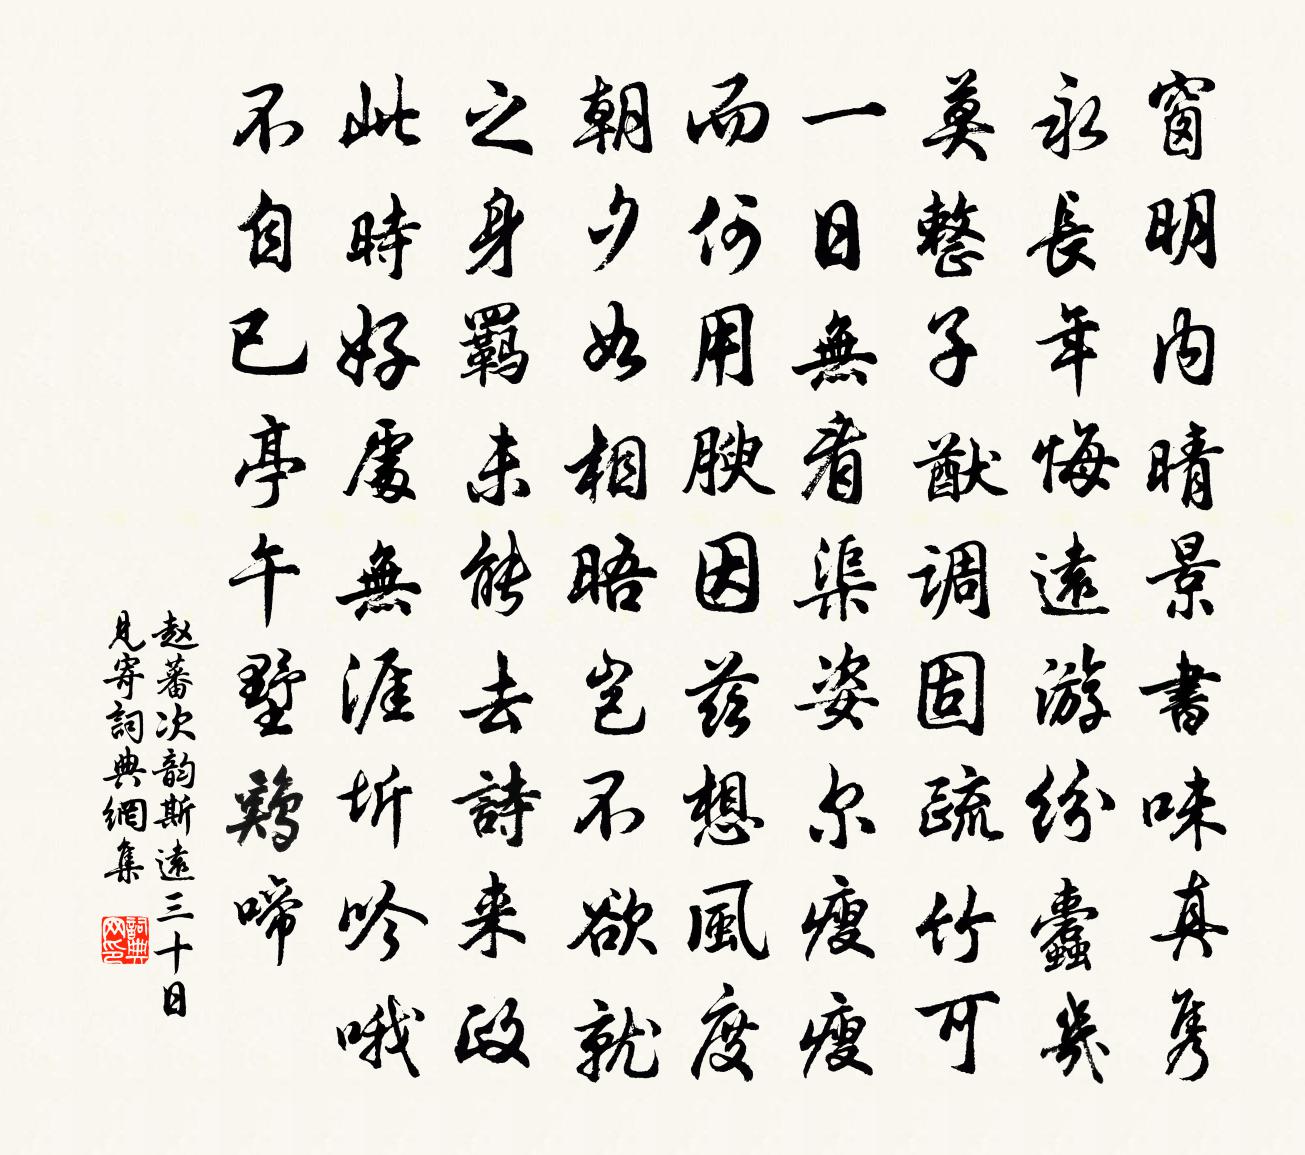 窗明内晴景書味真隽
永長年悔遠游紛蠹幾
莫整子猷調固疏竹可
一日無看渠姿尔瘦瘦
而何用腴因兹想風度
朝夕如相晤豈不欲就
之身羈未能去詩来政
此時好處無涯圻吟哦
不自已亭午墅鷄啼
赵蕃次韵斯遠三十日
見寄詞典網集
詞典网印